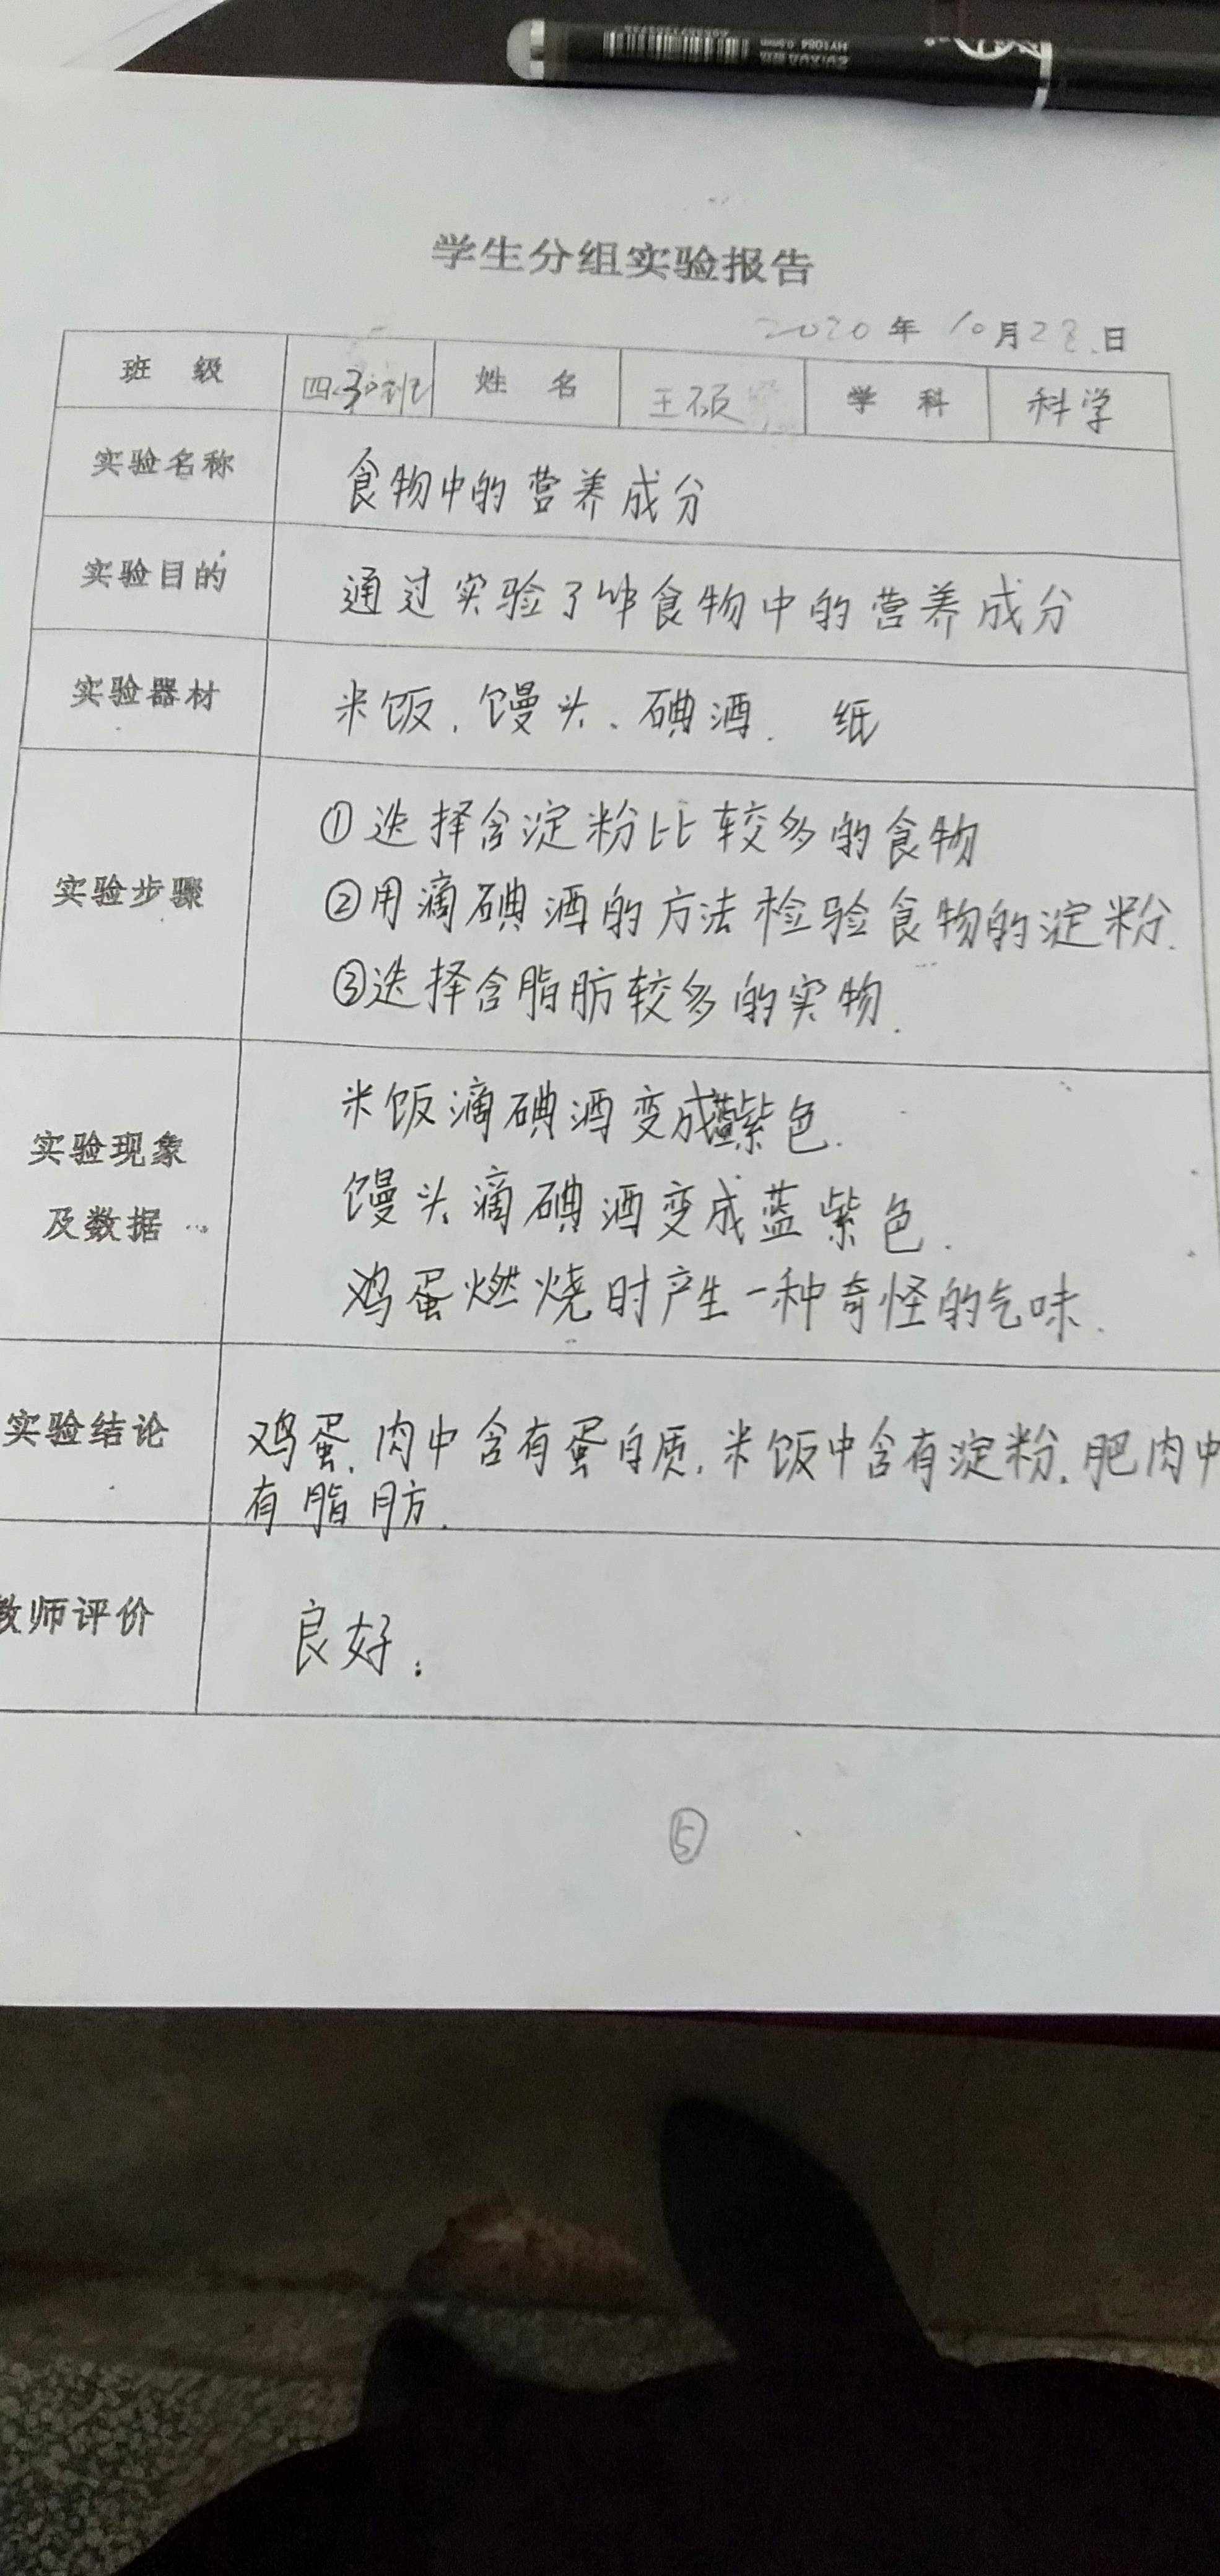 学生分组实验报告
2020年10月28日
班 级 四.3班 姓 名 王硕 学 科 科学
实验名称 食物中的营养成分
实验目的 通过实验了解食物中的营养成分
实验器材 米饭、馒头、碘酒、纸
实验步骤
①选择含淀粉比较多的食物
②用滴碘酒的方法检验食物的淀粉.
③选择含脂肪较多的实物.
实验现象
及数据
米饭滴碘酒变成蓝紫色.
馒头滴碘酒变成蓝紫色.
鸡蛋燃烧时产生一种奇怪的气味.
实验结论 鸡蛋、肉中含有蛋白质.米饭中含有淀粉.肥肉中
有脂肪.
教师评价 良好:
⑤